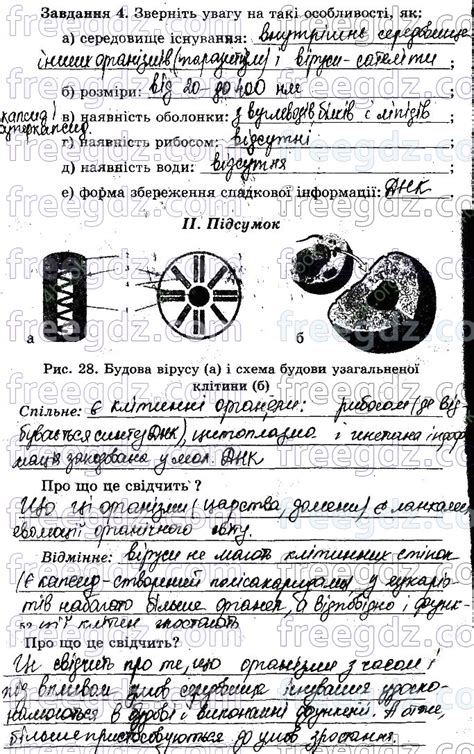 Завдання 4. Зверніть увагу на такі особливості, як:
а) середовище існування: внутрішнє середовище
інших організмів (паразитизм) і віруси-сателіти ;
б) розміри: від 20 до 400 нм ;
капсид і суперкапсид в) наявність оболонки: з вуглеводів білків і ліпідів ;
г) наявність рибосом: відсутні ;
д) наявність води: відсутня ;
е) форма збереження спадкової інформації: ДНК
II. Підсумок
а
б
Рис. 28. Будова вірусу (а) і схема будови узагальненої
клітини (б)
Спільне: є клітинні органели: рибосом (де від-
бувається синтез ДНК), цитоплазма і
закодована у мол. ДНК
Про що це свідчить ?
Що ці організми (царства, домени) є ланками
еволюції органічного світу.
Відмінне: віруси не мають клітинних стінок
(є капсид - створений полісахаридами) у еукаріо-
тів набагато більше органел, а відповідно і функ-
клітин
Про що це свідчить ?
Це свідчить про те, що організми з часом і
під впливом умов середовища існування удоско-
налюються в будові і виконанні функцій. А отже,
більше пристосовуються до умов зростання.
freegdz.com